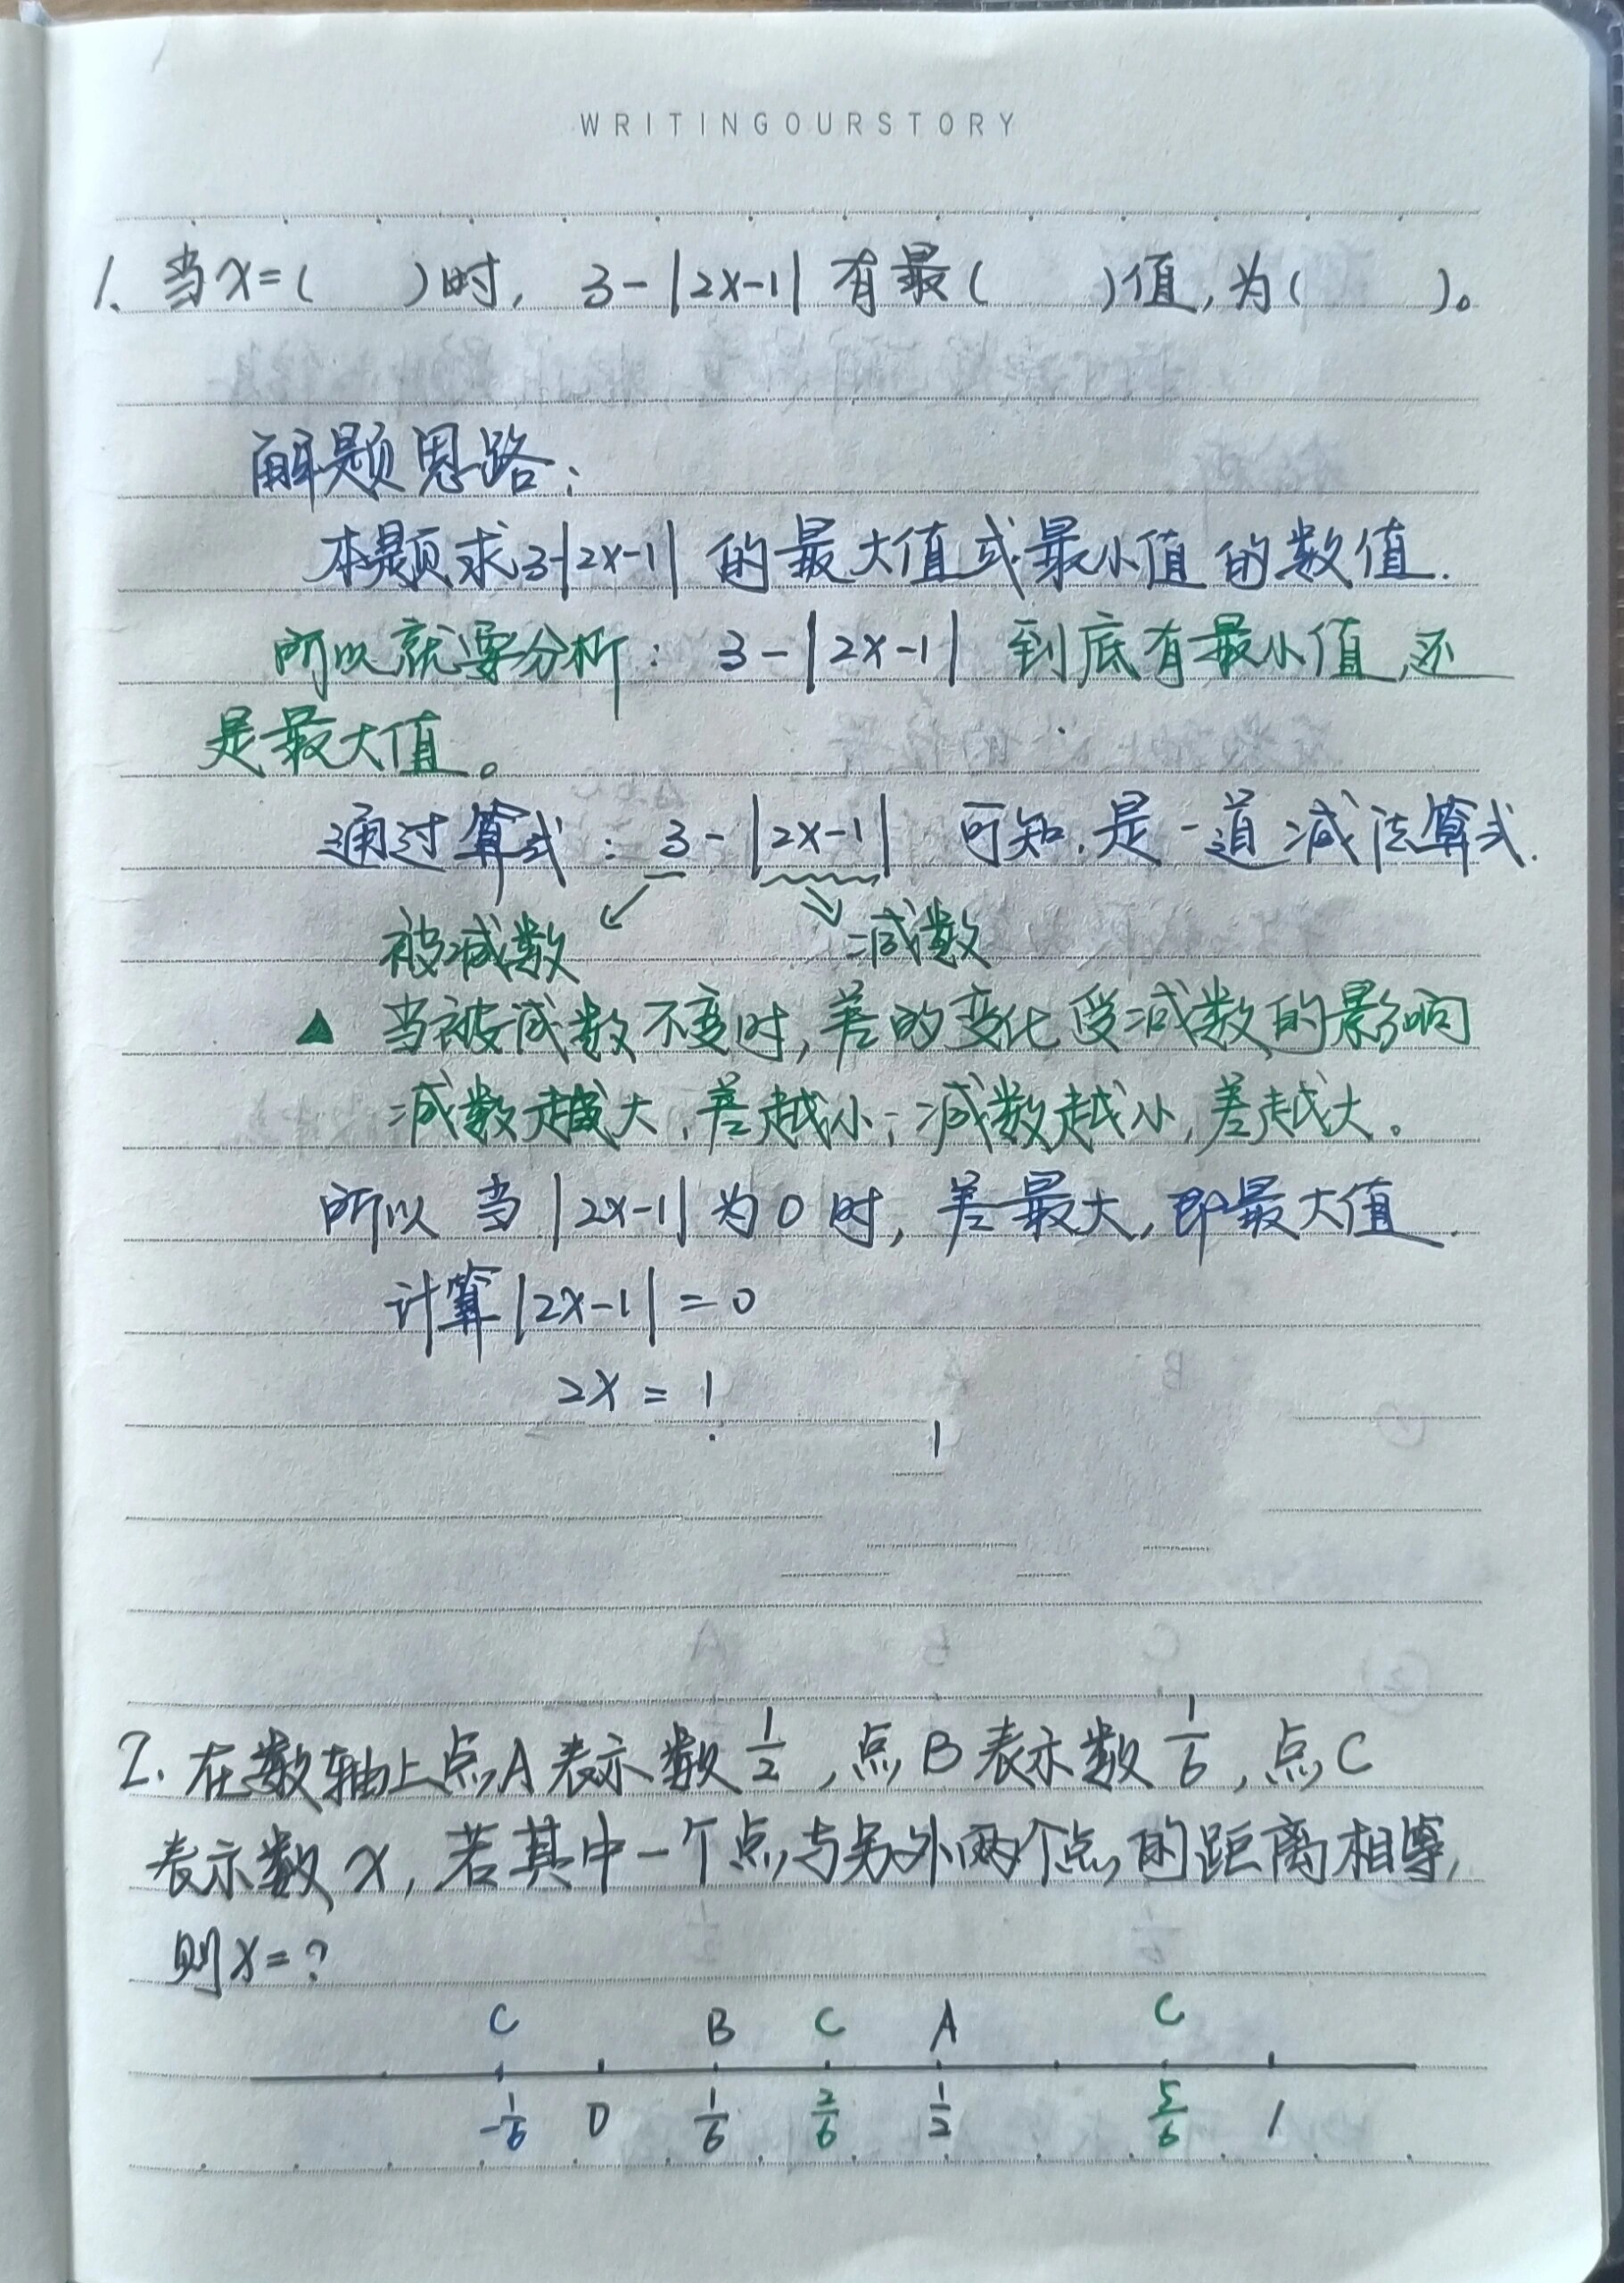 WRITINGOURSTORY
1. 当x=(    )时, 3-|2x-1| 有最(    )值,为(    )。
解题思路:
本题求3-|2x-1| 的最大值或最小值的数值.
所以就要分析: 3-|2x-1| 到底有最小值,还
是最大值。
通过算式: 3-|2x-1| 可知,是一道减法算式.
被减数 减数
▲ 当被减数不变时,差的变化受减数的影响
减数越大,差越小;减数越小,差越大。
所以 当|2x-1|为0时, 差最大,即最大值.
计算|2x-1|=0
2x=1
1
2. 在数轴上点A表示数1/2,点B表示数1/6,点C
表示数x,若其中一个点与另外两个点的距离相等,
则x=?
C B C A C
-1/6 0 1/6 2/6 1/2 5/6 1